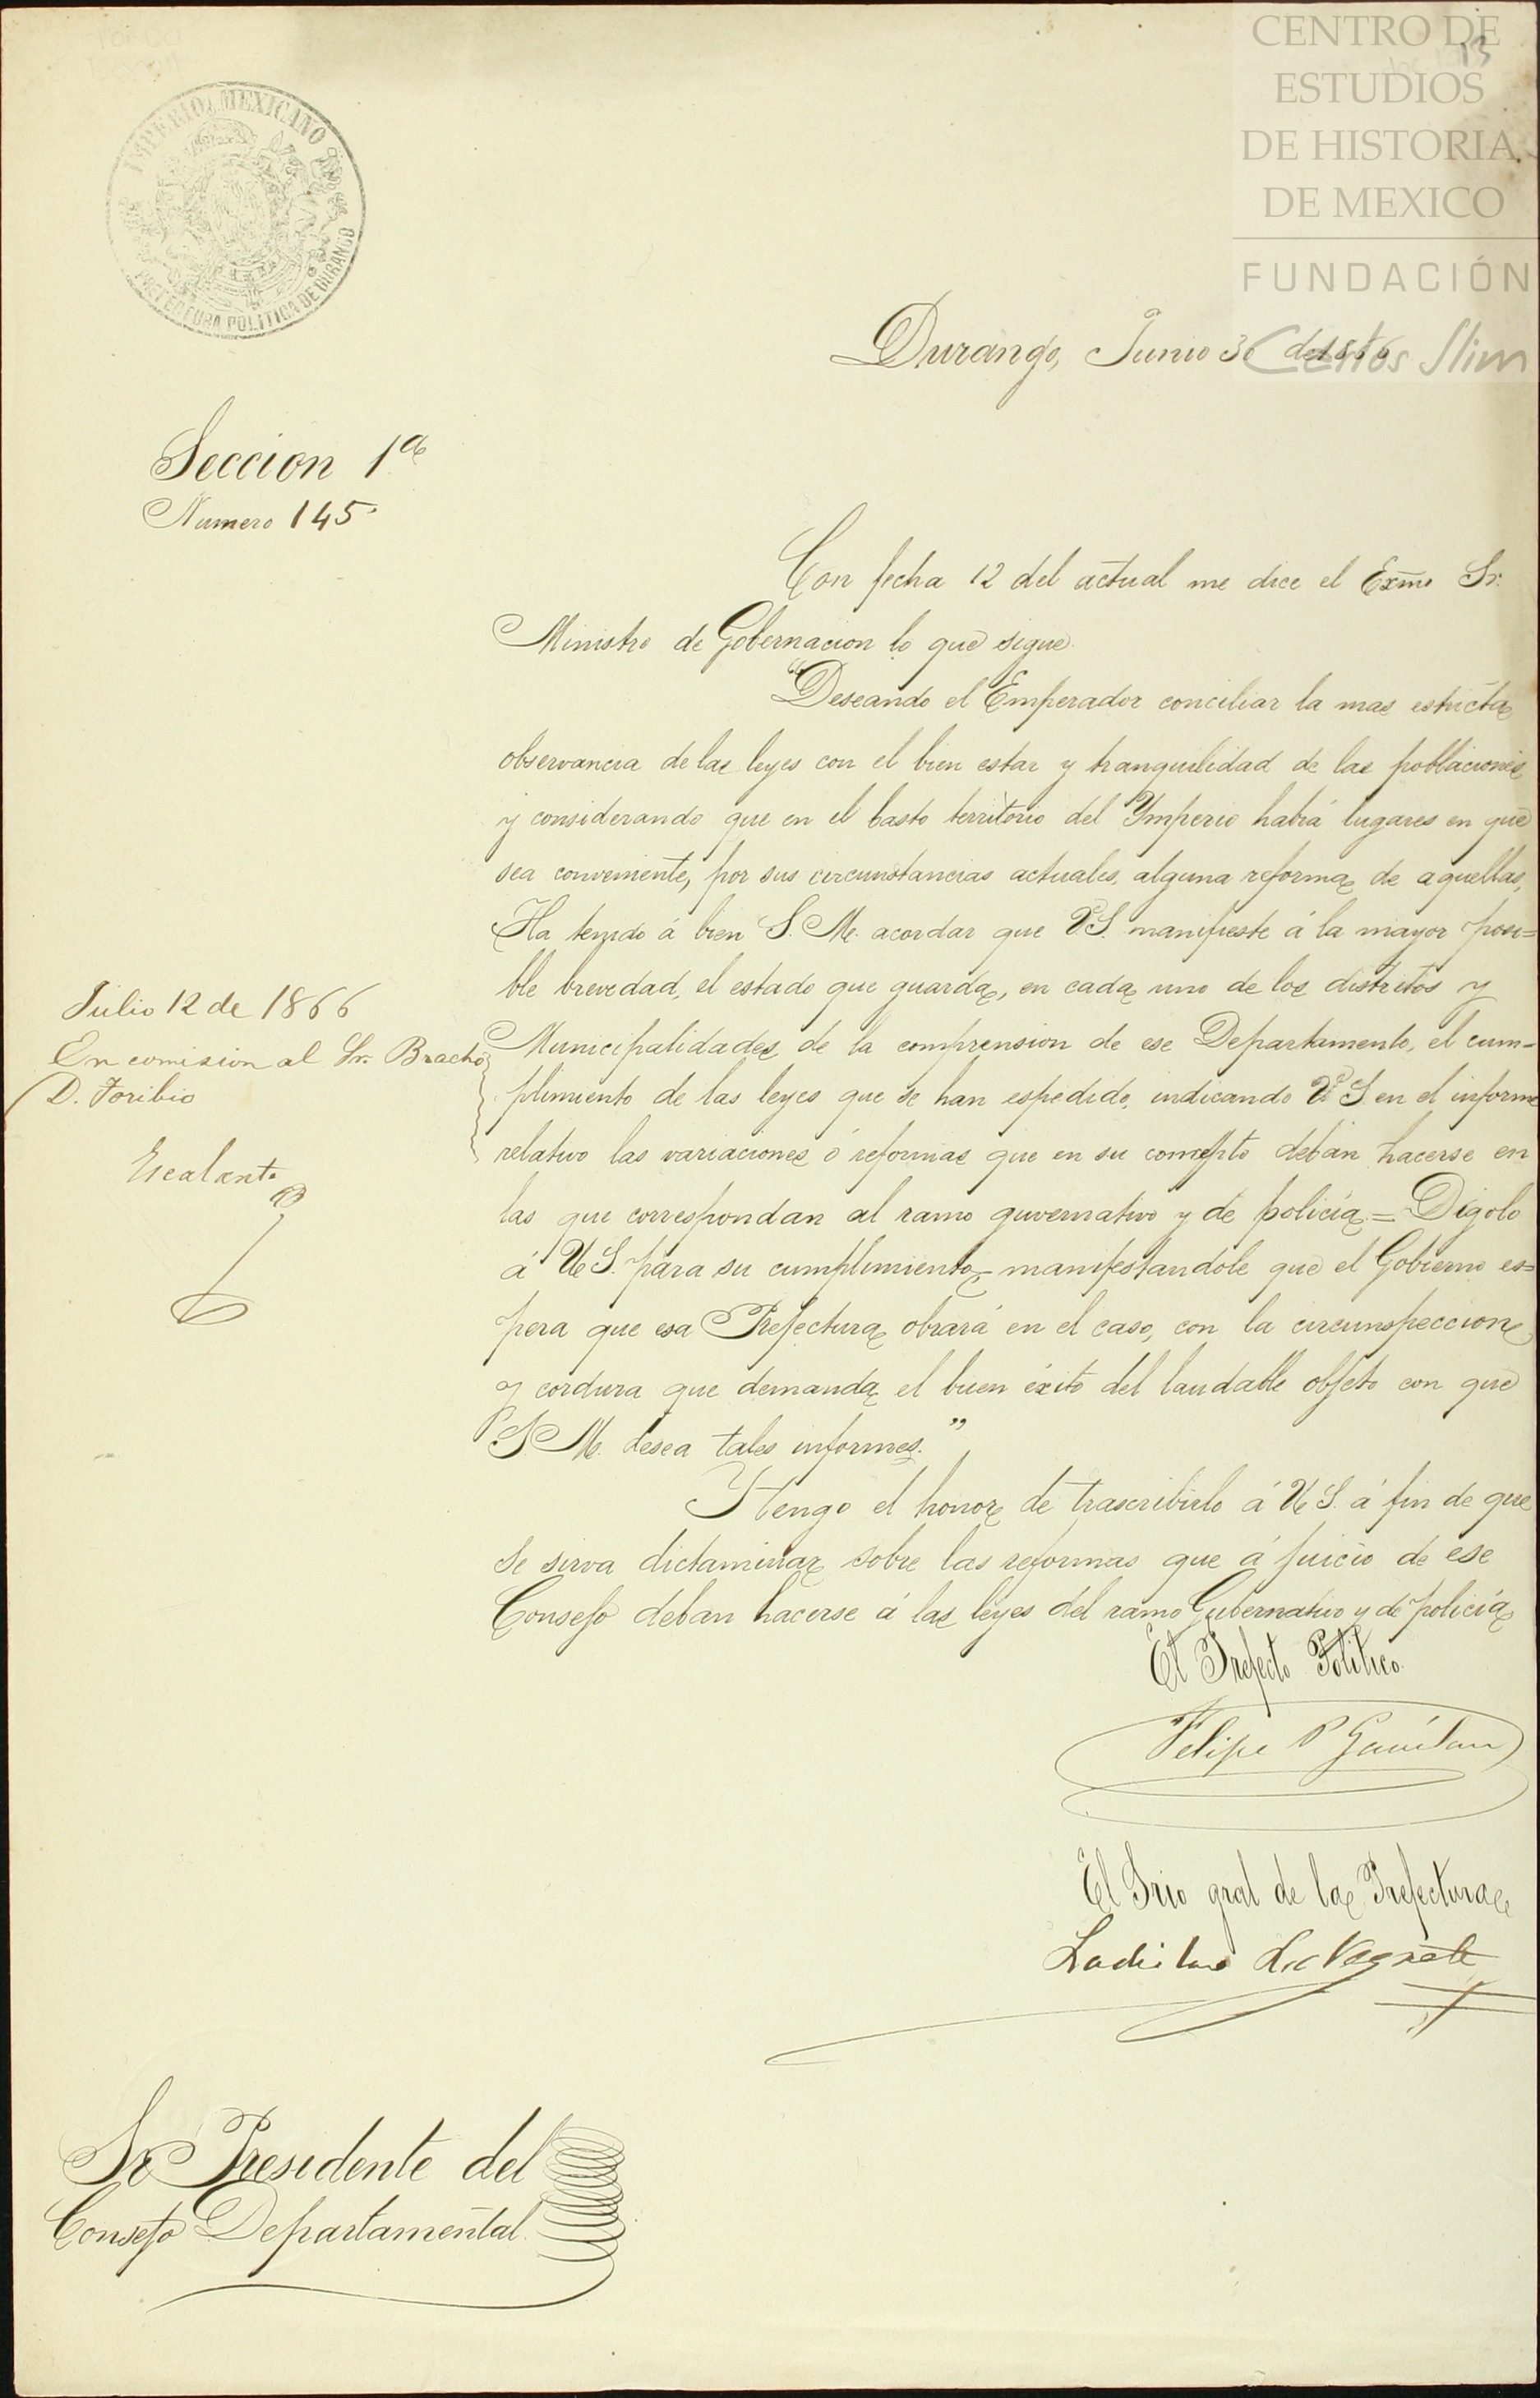 CENTRO DE
ESTUDIOS
DE HISTORIA
DE MEXICO
FUNDACIÓN
Carlos Slim
13
IMPERIO MEXICANO
PREFECTURA POLITICA DE DURANGO
Durango, Junio 30 de 1866
Seccion 1a
Numero 145
Con fecha 12 del actual me dice el Exmo Sr.
Ministro de Gobernacion lo que sigue
"Deseando el Emperador conciliar la mas estricta
observancia de las leyes con el bien estar y tranquilidad de las poblaciones
y considerando que en el basto territorio del Ymperio habrá lugares en que
sea conveniente, por sus circunstancias actuales, alguna reforma de aquellas,
Ha tenido á bien S. M. acordar que V.S. manifieste á la mayor posi=
ble brevedad, el estado que guarda, en cada uno de los distritos y
Municipalidades de la comprension de ese Departamento, el cum-
plimiento de las leyes que se han espedido, indicando V.S. en el informe
relativo las variaciones ó reformas que en su concepto deban hacerse en
las que correspondan al ramo guvernativo y de policía = Digolo
á V.S. para su cumplimiento, manifestandole que el Gobierno es=
pera que esa Prefectura obrará en el caso, con la circunspeccion
y cordura que demanda el buen éxito del laudable objeto con que
S. M. desea tales informes."
Y tengo el honor de trascribirlo á V.S. á fin de que
se sirva dictaminar sobre las reformas que á juicio de ese
Consejo deban hacerse á las leyes del ramo Gubernativo y de policía
Julio 12 de 1866
En comision al Sr. Bracho
D. Toribio
Escalante
El Prefecto Politico
Felipe P Gavilan
El Srio gral de la Prefectura
Ladislao
Sr Presidente del
Consejo Departamental